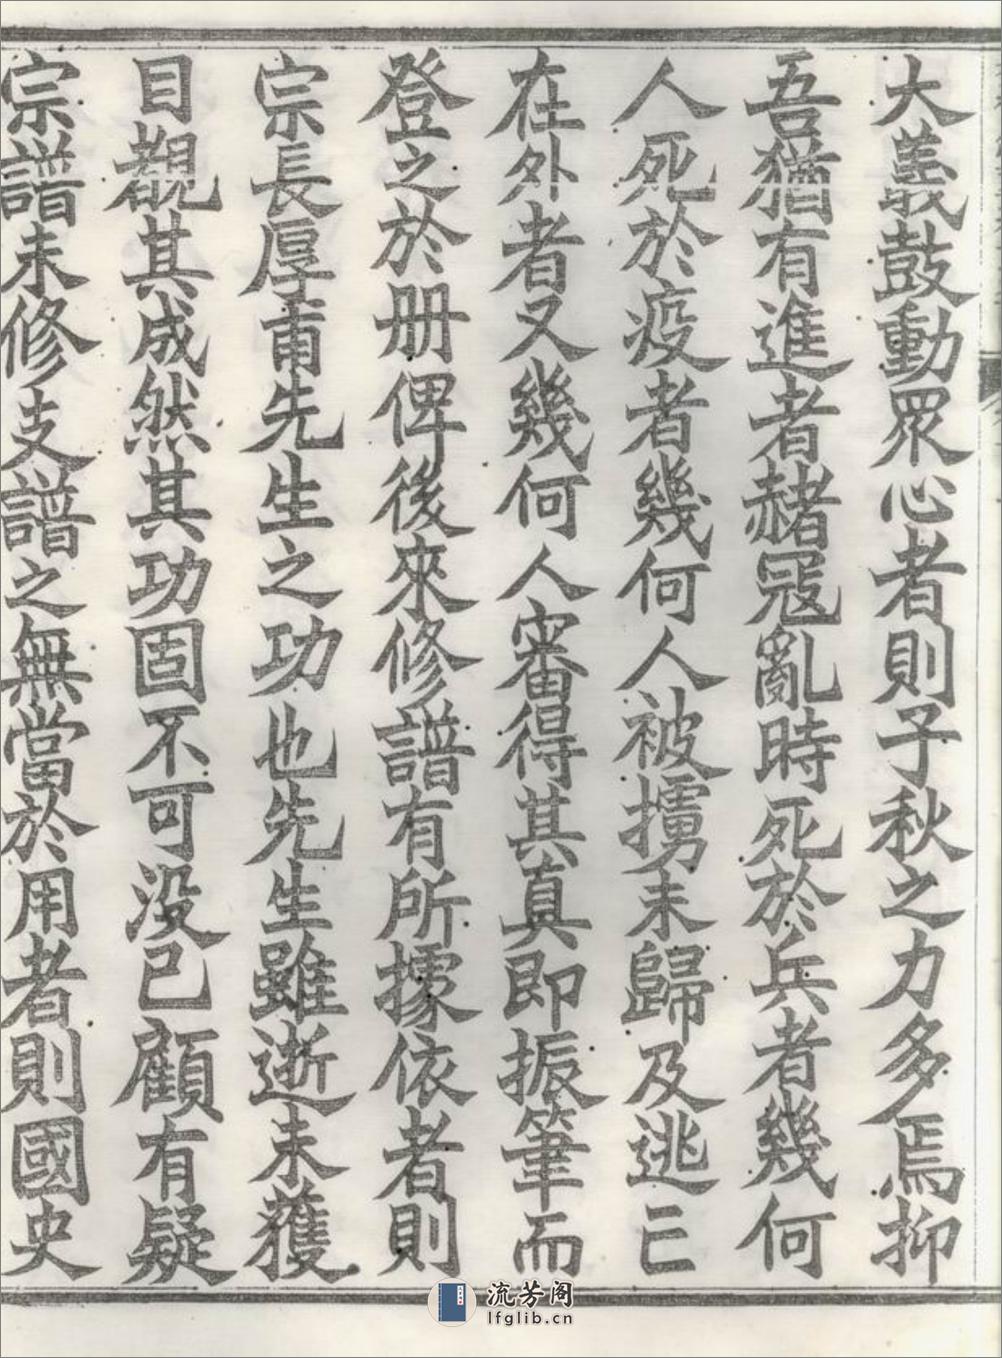 大義鼓動眾心者則子秋之力多焉抑
吾猶有進者赭寇亂時死於兵者幾何
人死於疫者幾何人被擄未歸及逃亡
在外者又幾何人審得其真即振筆而
登之於册俾後來修譜有所據依者則
宗長厚甫先生之功也先生雖逝未獲
目覩其成然其功固不可没已顧有疑
宗譜未修支譜之無當於用者則國史
流芳阁
lfglib.cn